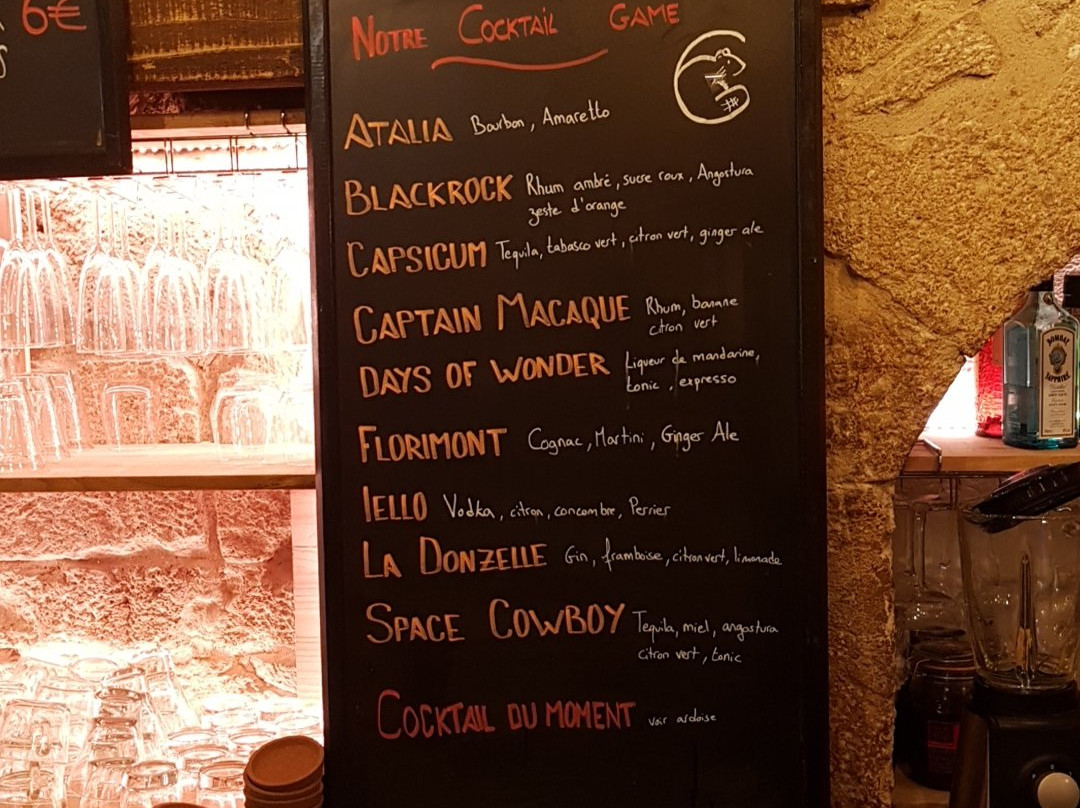 6€
NOTRE COCKTAIL GAME
ATALIA Bourbon, Amaretto
BLACKROCK Rhum ambré, sucre roux, Angostura
zeste d'orange
CAPSICUM Tequila, tabasco vert, citron vert, ginger ale
CAPTAIN MACAQUE Rhum, banane
citron vert
DAYS OF WONDER Liqueur de mandarine,
tonic, expresso
FLORIMONT Cognac, Martini, Ginger Ale
IELLO Vodka, citron, concombre, Perrier
LA DONZELLE Gin, framboise, citron vert, limonade
SPACE COWBOY Tequila, miel, angostura
citron vert, tonic
COCKTAIL DU MOMENT voir ardoise
BOMBAY
SAPPHIRE